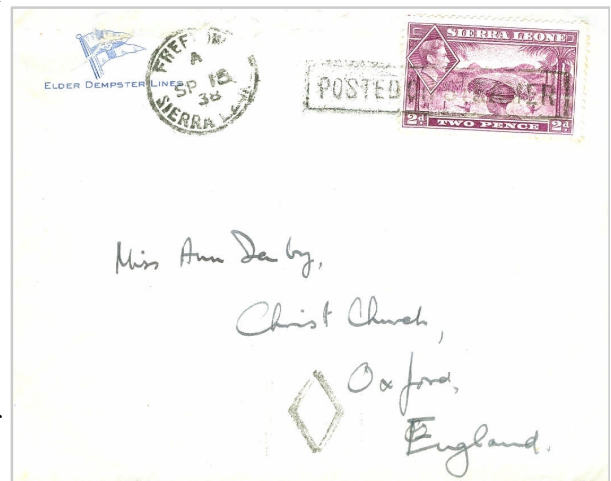 ELDER DEMPSTER LINES
FREETOWN
A
SP 15
38
SIERRA LEONE
POSTED
SIERRA LEONE
2d TWO PENCE 2d
Miss Ann Danby,
Christ Church,
Oxford,
England.